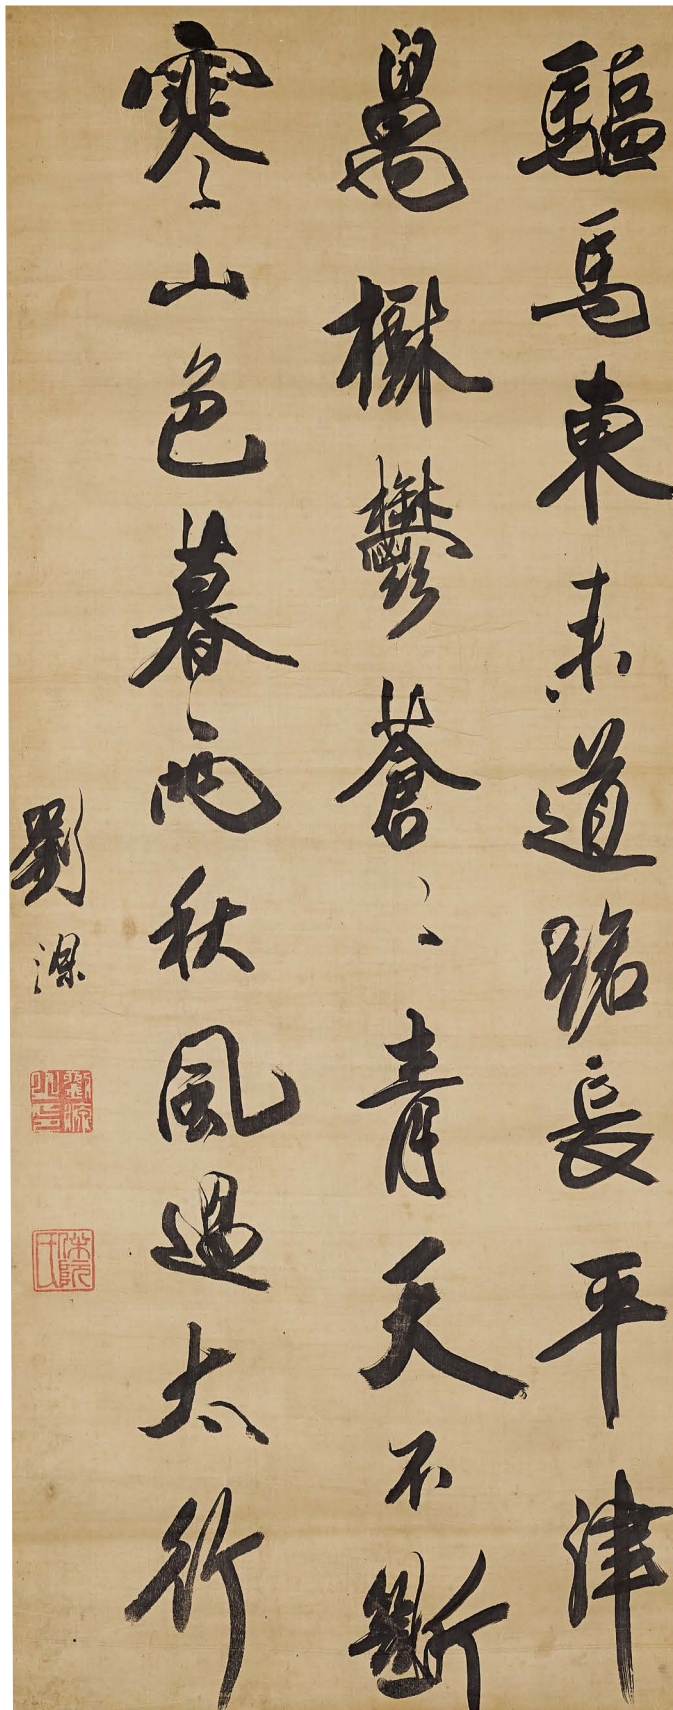 驅馬東来道路長平津
萬樹鬱蒼〻青天不斷
寒山色暮雨秋風過太行
劉源
劉源之印
伴阮氏